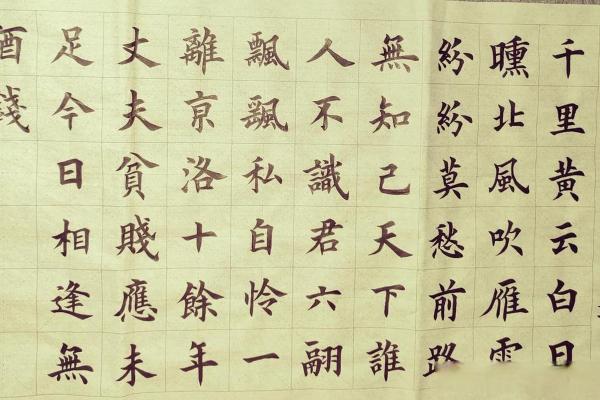 千里黄云白日
曛北風吹雁雪
紛紛莫愁前路
無知己天下誰
人不識君六翮
飄飖私自怜一
離亰洛十餘年
丈夫貧賤應未
足今日相逢無
酒錢